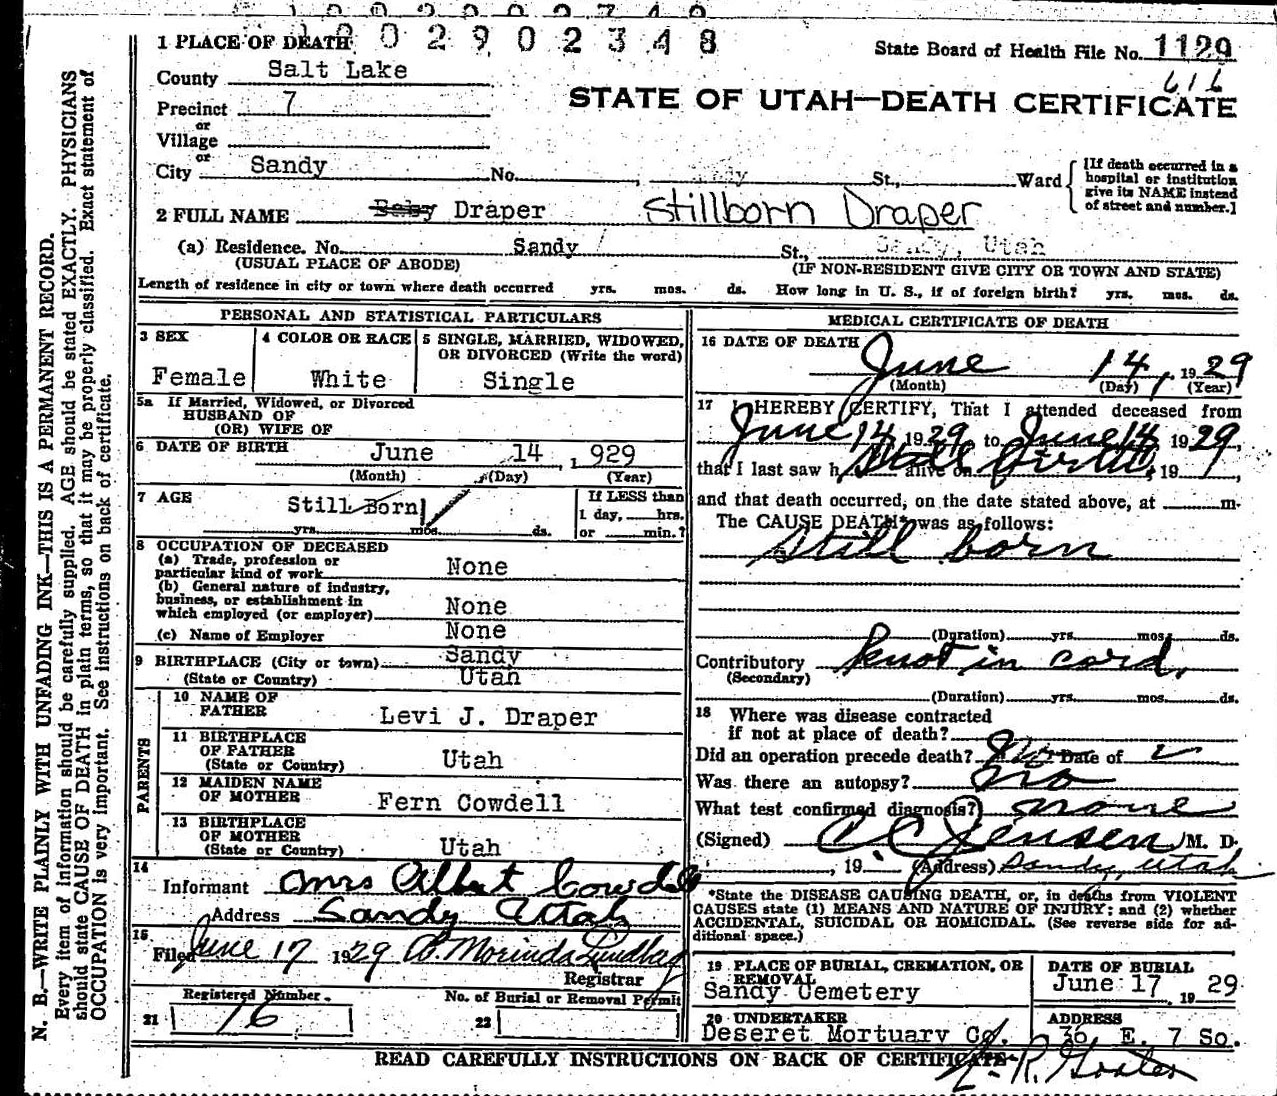 1 PLACE OF DEATH 0 0 2 9 0 2 3 4 8
State Board of Health File No. 1129
County Salt Lake
616
Precinct 7
STATE OF UTAH—DEATH CERTIFICATE
or
Village
or
City Sandy No. , St., Ward [If death occurred in a hospital or institution give its NAME instead of street and number.]
2 FULL NAME Baby Draper Stillborn Draper
(a) Residence. No. Sandy St., Sandy, Utah
(USUAL PLACE OF ABODE) (IF NON-RESIDENT GIVE CITY OR TOWN AND STATE)
Length of residence in city or town where death occurred yrs. mos. ds. How long in U. S., if of foreign birth? yrs. mos. ds.
PERSONAL AND STATISTICAL PARTICULARS
3 SEX
Female
4 COLOR OR RACE
White
5 SINGLE, MARRIED, WIDOWED,
OR DIVORCED (Write the word)
Single
5a If Married, Widowed, or Divorced
HUSBAND OF
(OR) WIFE OF
6 DATE OF BIRTH June 14 , 1929
(Month) (Day) (Year)
7 AGE Still Born
yrs. mos. ds.
If LESS than
1 day, hrs.
or min.?
8 OCCUPATION OF DECEASED
(a) Trade, profession or
particular kind of work None
(b) General nature of industry,
business, or establishment in
which employed (or employer) None
(c) Name of Employer None
9 BIRTHPLACE (City or town) Sandy
(State or Country) Utah
PARENTS
10 NAME OF
FATHER Levi J. Draper
11 BIRTHPLACE
OF FATHER
(State or Country) Utah
12 MAIDEN NAME
OF MOTHER Fern Cowdell
13 BIRTHPLACE
OF MOTHER
(State or Country) Utah
14
Informant Mrs Albert Cowdell
Address Sandy Utah
15
Filed June 17 1929 A. Morinda Lundberg
Registrar
Registered Number.
21 16
No. of Burial or Removal Permit
22
MEDICAL CERTIFICATE OF DEATH
16 DATE OF DEATH
June 14, 1929
(Month) (Day) (Year)
17 I HEREBY CERTIFY, That I attended deceased from
June 14 1929 to June 14 1929
that I last saw h alive on Still birth, 19 ,
and that death occurred, on the date stated above, at m.
The CAUSE DEATH* was as follows:
Still born
(Duration) yrs. mos. ds.
Contributory knot in cord.
(Secondary)
(Duration) yrs. mos. ds.
18 Where was disease contracted
if not at place of death?
Did an operation precede death? No Date of
Was there an autopsy? no
What test confirmed diagnosis? none
(Signed) Jensen M. D.
, 19 (Address) Sandy, Utah
*State the DISEASE CAUSING DEATH, or, in deaths from VIOLENT
CAUSES state (1) MEANS AND NATURE OF INJURY; and (2) whether
ACCIDENTAL, SUICIDAL OR HOMICIDAL. (See reverse side for ad-
ditional space.)
19 PLACE OF BURIAL, CREMATION, OR
REMOVAL
Sandy Cemetery
DATE OF BURIAL
June 17 19 29
20 UNDERTAKER
Deseret Mortuary Co.
ADDRESS
36 E. 7 So.
READ CAREFULLY INSTRUCTIONS ON BACK OF CERTIFICATE
N. B.—WRITE PLAINLY WITH UNFADING INK—THIS IS A PERMANENT RECORD.
Every item of information should be carefully supplied. AGE should be stated EXACTLY. PHYSICIANS
should state CAUSE OF DEATH in plain terms, so that it may be properly classified. Exact statement of
OCCUPATION is very important. See instructions on back of certificate.